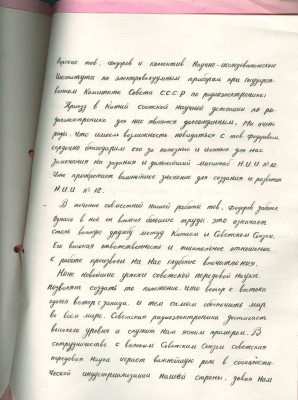 тов. Федоров и коллектив Научно-исследовательского
Института по электровакуумным приборам при государст-
венном Комитете Совета СССР по радиоэлектронике:
Приезд в Китай советской научной делегации по ра-
диоэлектронике для нас является долгожданным. Мы очень
рады. Что имеем возможность повидаться с тов. Федоровым,
сердечно благодарим его за полезные и ценные для нас
замечания на задания и дальнейший масштаб Н.И.И. № 12.
Что приобретает важнейшее значение для создания и развития
Н.И.И. № 12.
В течение совместной нашей работы тов. Федоров
Однако в тоже он вложил большие труды. это означает
столь великую дружбу между Китаем и Советским Союзом.
Его великая ответственность и тщательное отношение
к работе произвели на нас глубокие впечатления.
новейшие успехи советской передовой науки
позволят создать то положение. что ветер с востока
ветер с запада. И тем самым обеспечить мир
во всём мире. Советская радиоэлектроника достигает
высокого уровня и служит нам ясным примером. В
сотрудничестве с великим Советским Союзом советская
передовая наука играет важнейшую роль в социалисти-
ческой индустриализации нашей страны. давая нам